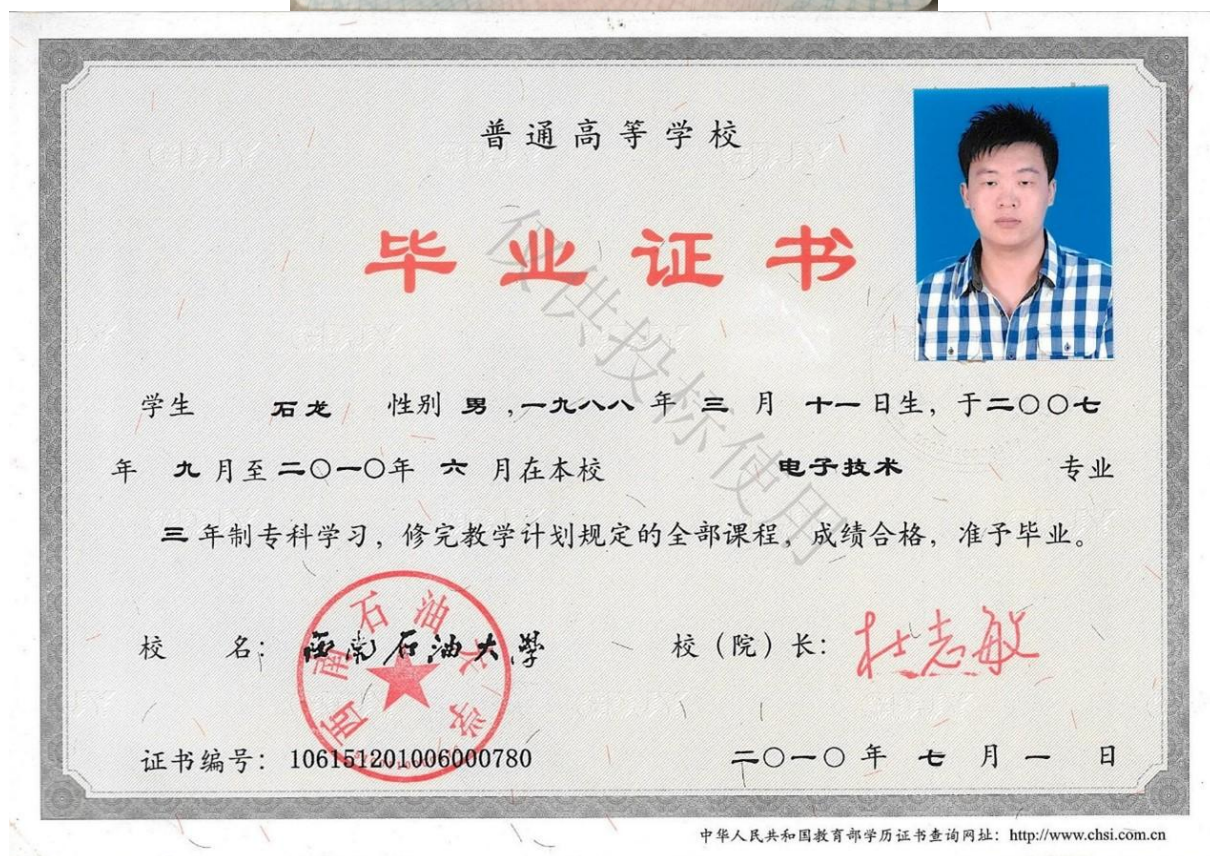 普通高等学校
毕业证书
仅供投标使用
学生 石龙 性别 男 ,一九八八 年 三 月 十一 日生，于二〇〇七
年 九 月至 二〇一〇年 六 月在本校 电子技术 专业
三 年制专科学习，修完教学计划规定的全部课程，成绩合格，准予毕业。
校 名： 西南石油大学 校（院）长： 杜志敏
西南石油大学
证书编号： 106151201006000780 二〇一〇 年 七 月 一 日
中华人民共和国教育部学历证书查询网址：http://www.chsi.com.cn